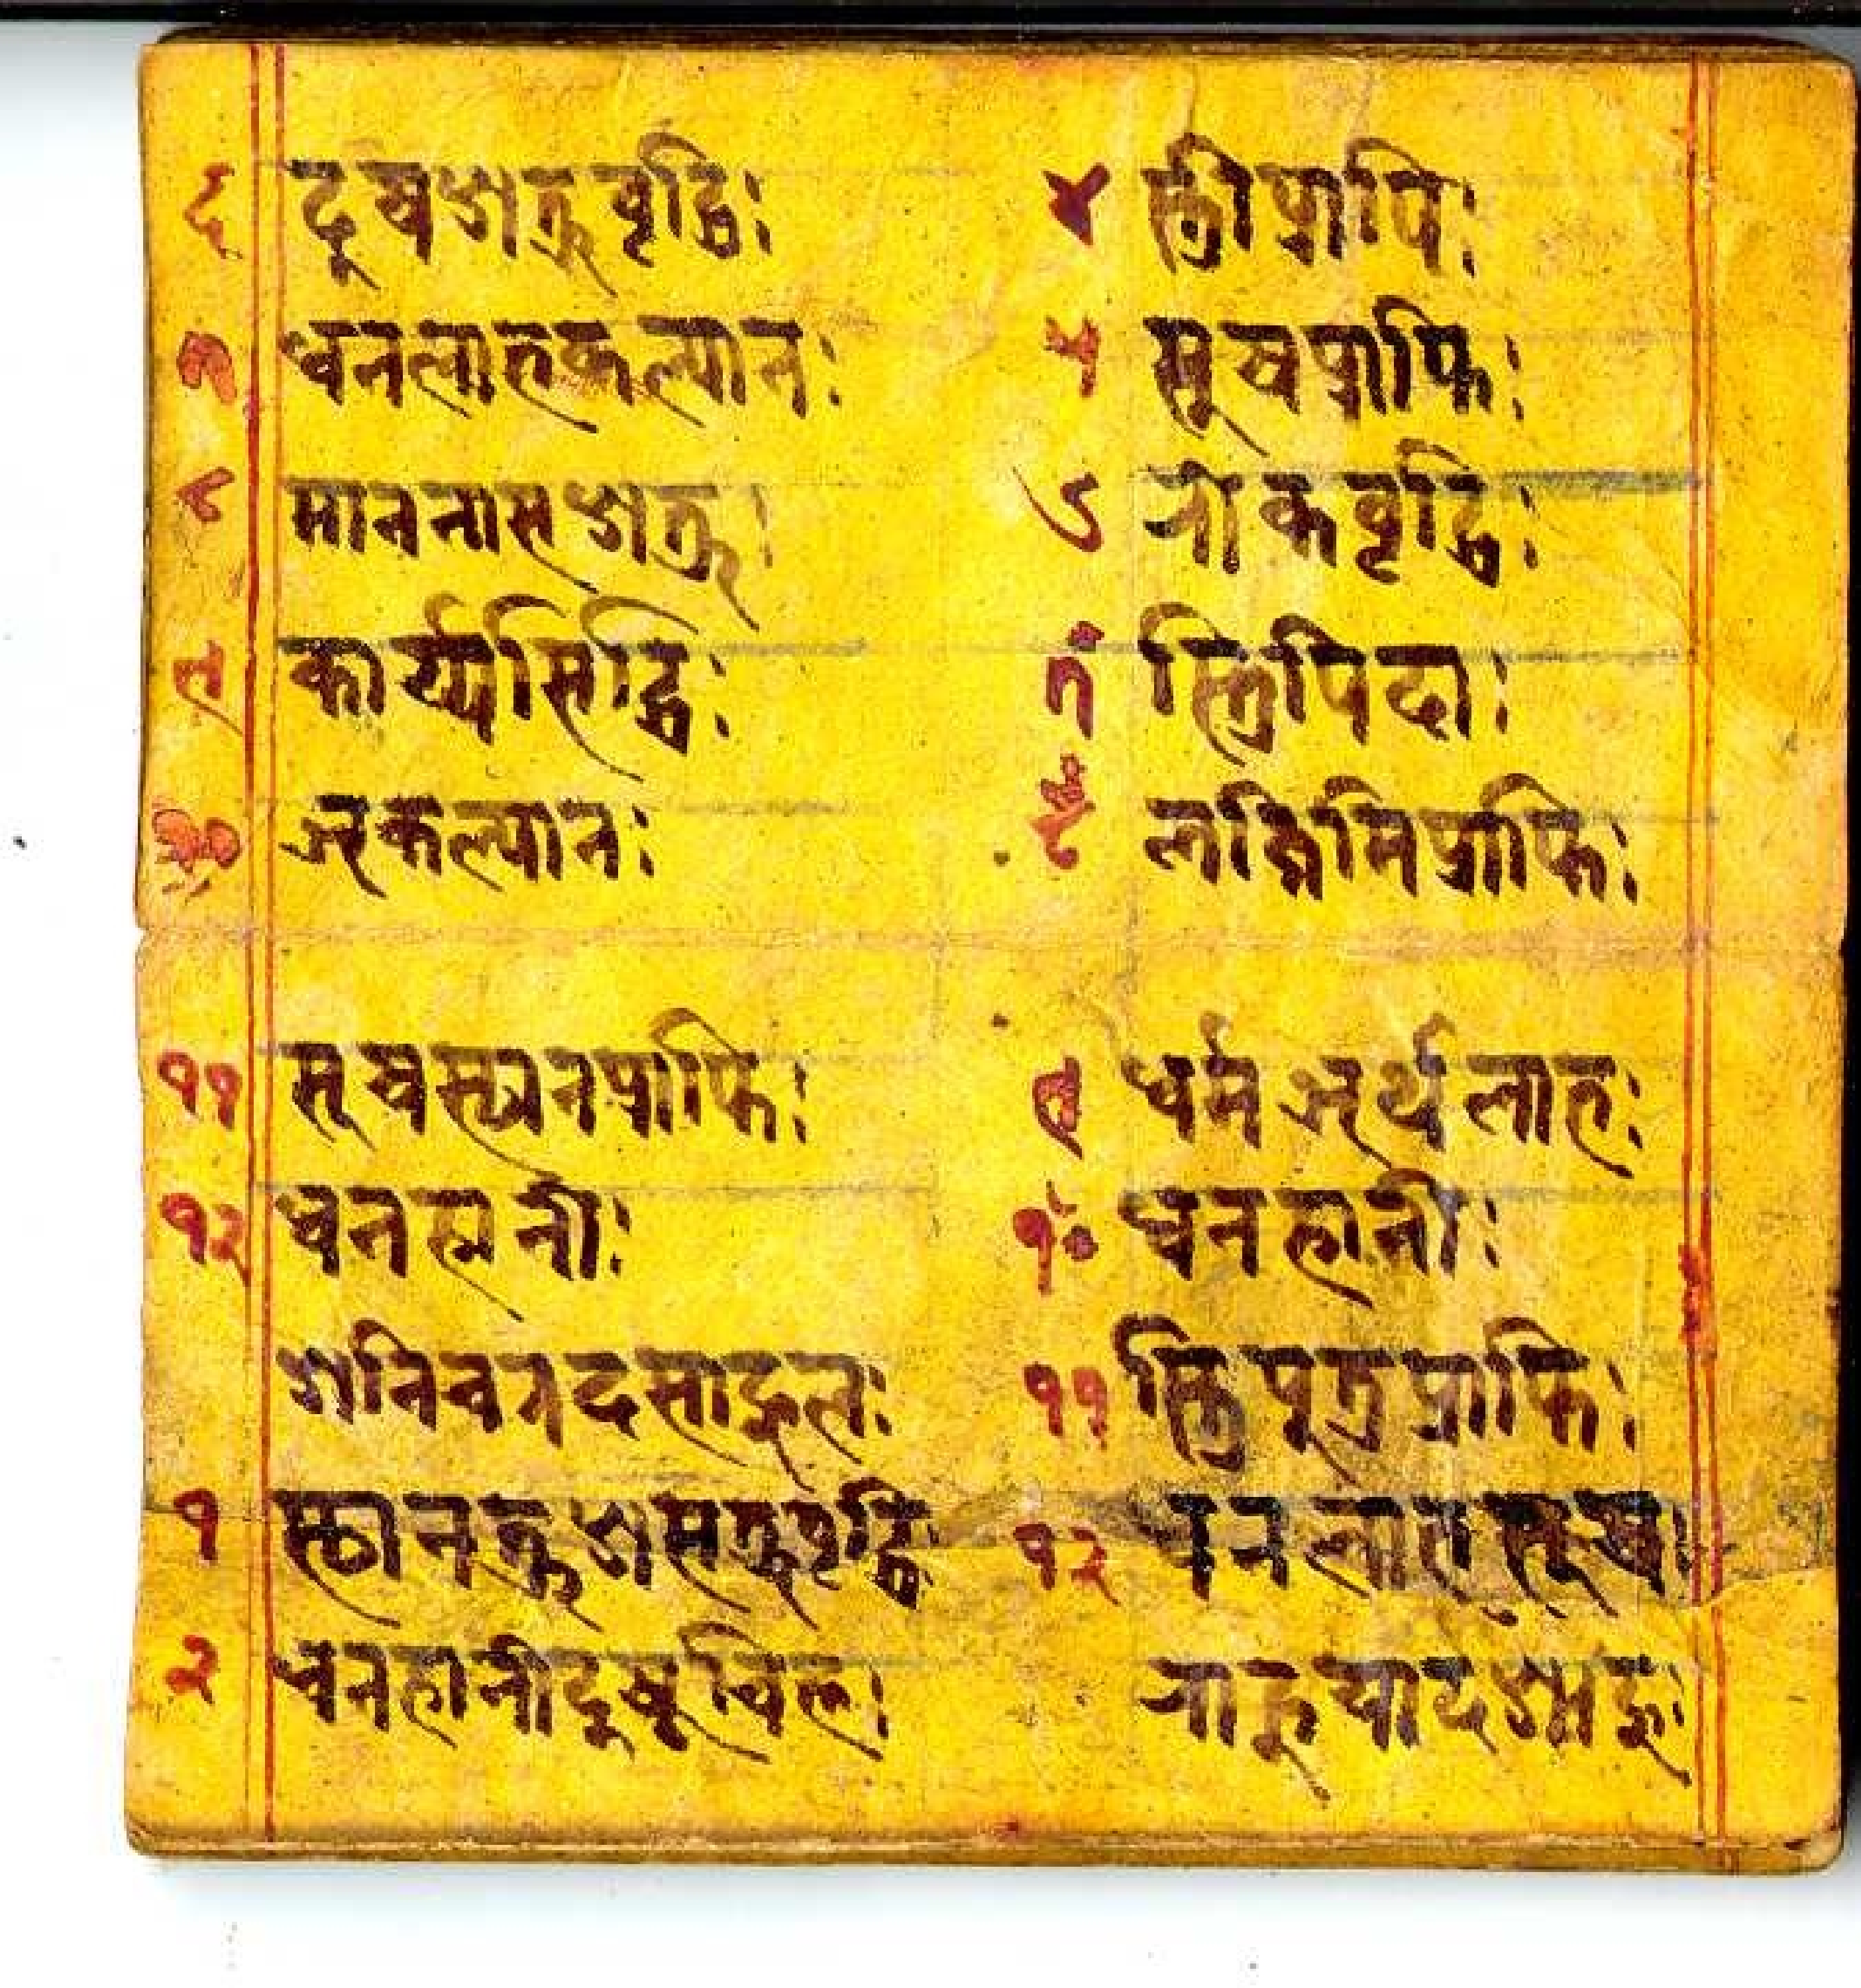 ६ दूखशत्रूवृद्धिः
७ धनलाभकल्यानः
८ माननासशत्रूः
९ कार्य्यसिद्धिः
१० अकल्यानः
११ सूखस्थानप्राप्तिः
१२ धनहानीः
शनिचरदसाफलः
१
२ धनहानीदूखू
४ स्त्रीप्राप्तिः
५ सूखप्राप्तिः
६ रोकवृद्धिः
७ स्त्रिपिदाः
८ लक्ष्मिमिप्राप्तिः
९ धर्मअर्थलाभः
१० धनहानीः
११ स्त्रिपूत्रप्राप्तिः
१२ धनलाभसूखः
राहूयादशाफः